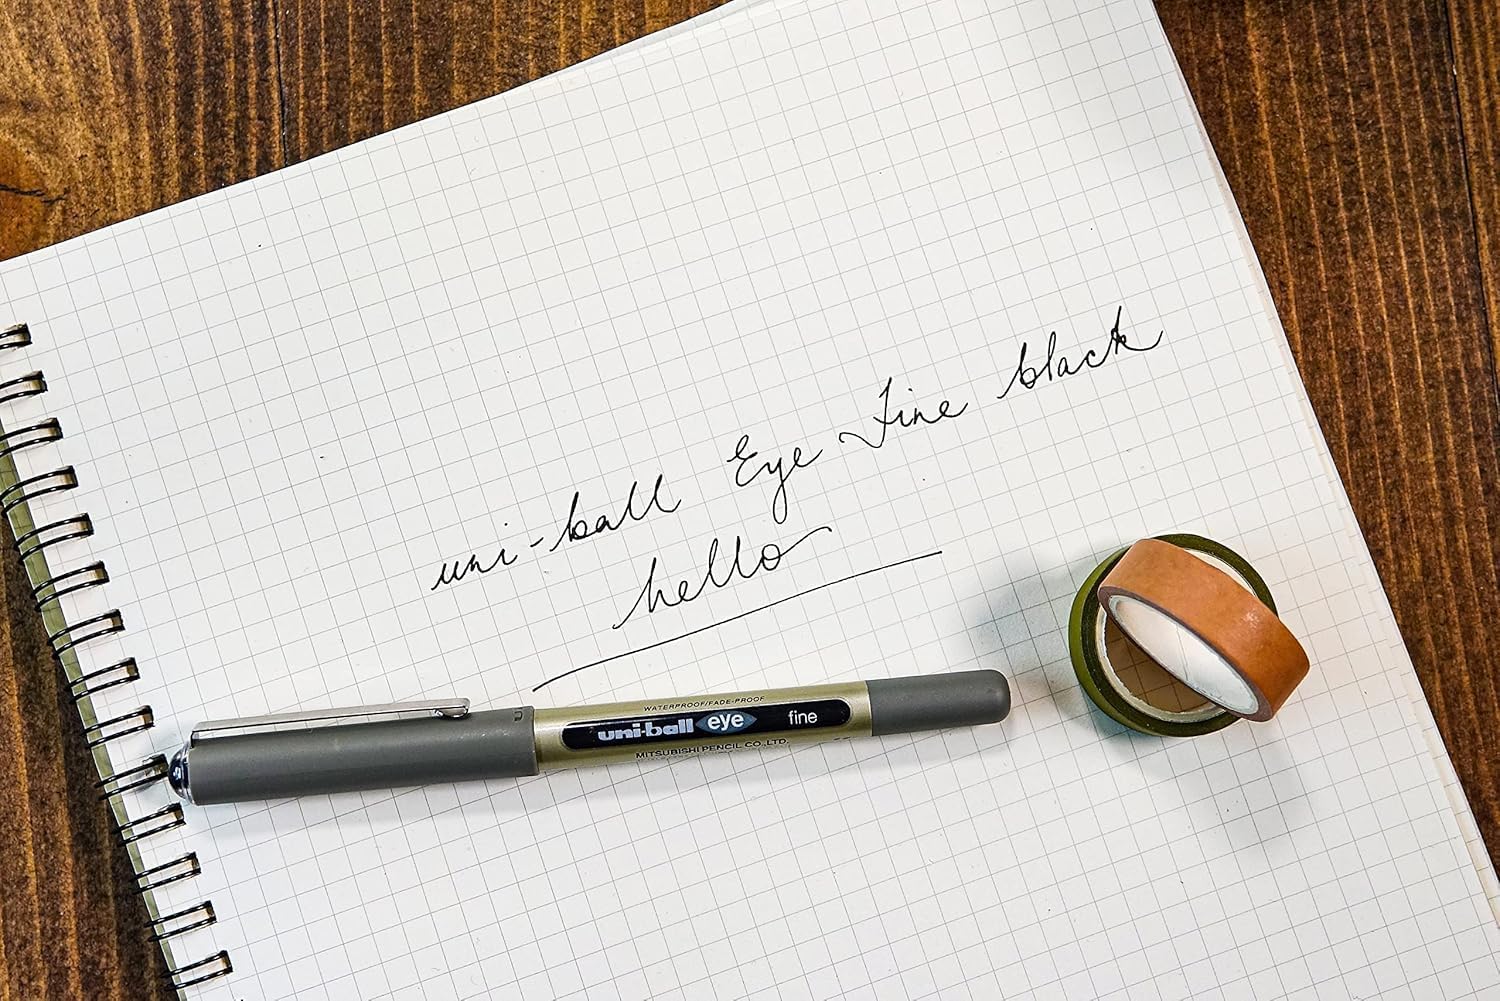 uni-ball Eye Fine black
hello
WATERPROOF/FADE-PROOF
uni-ball eye fine
MITSUBISHI PENCIL CO.,LTD.